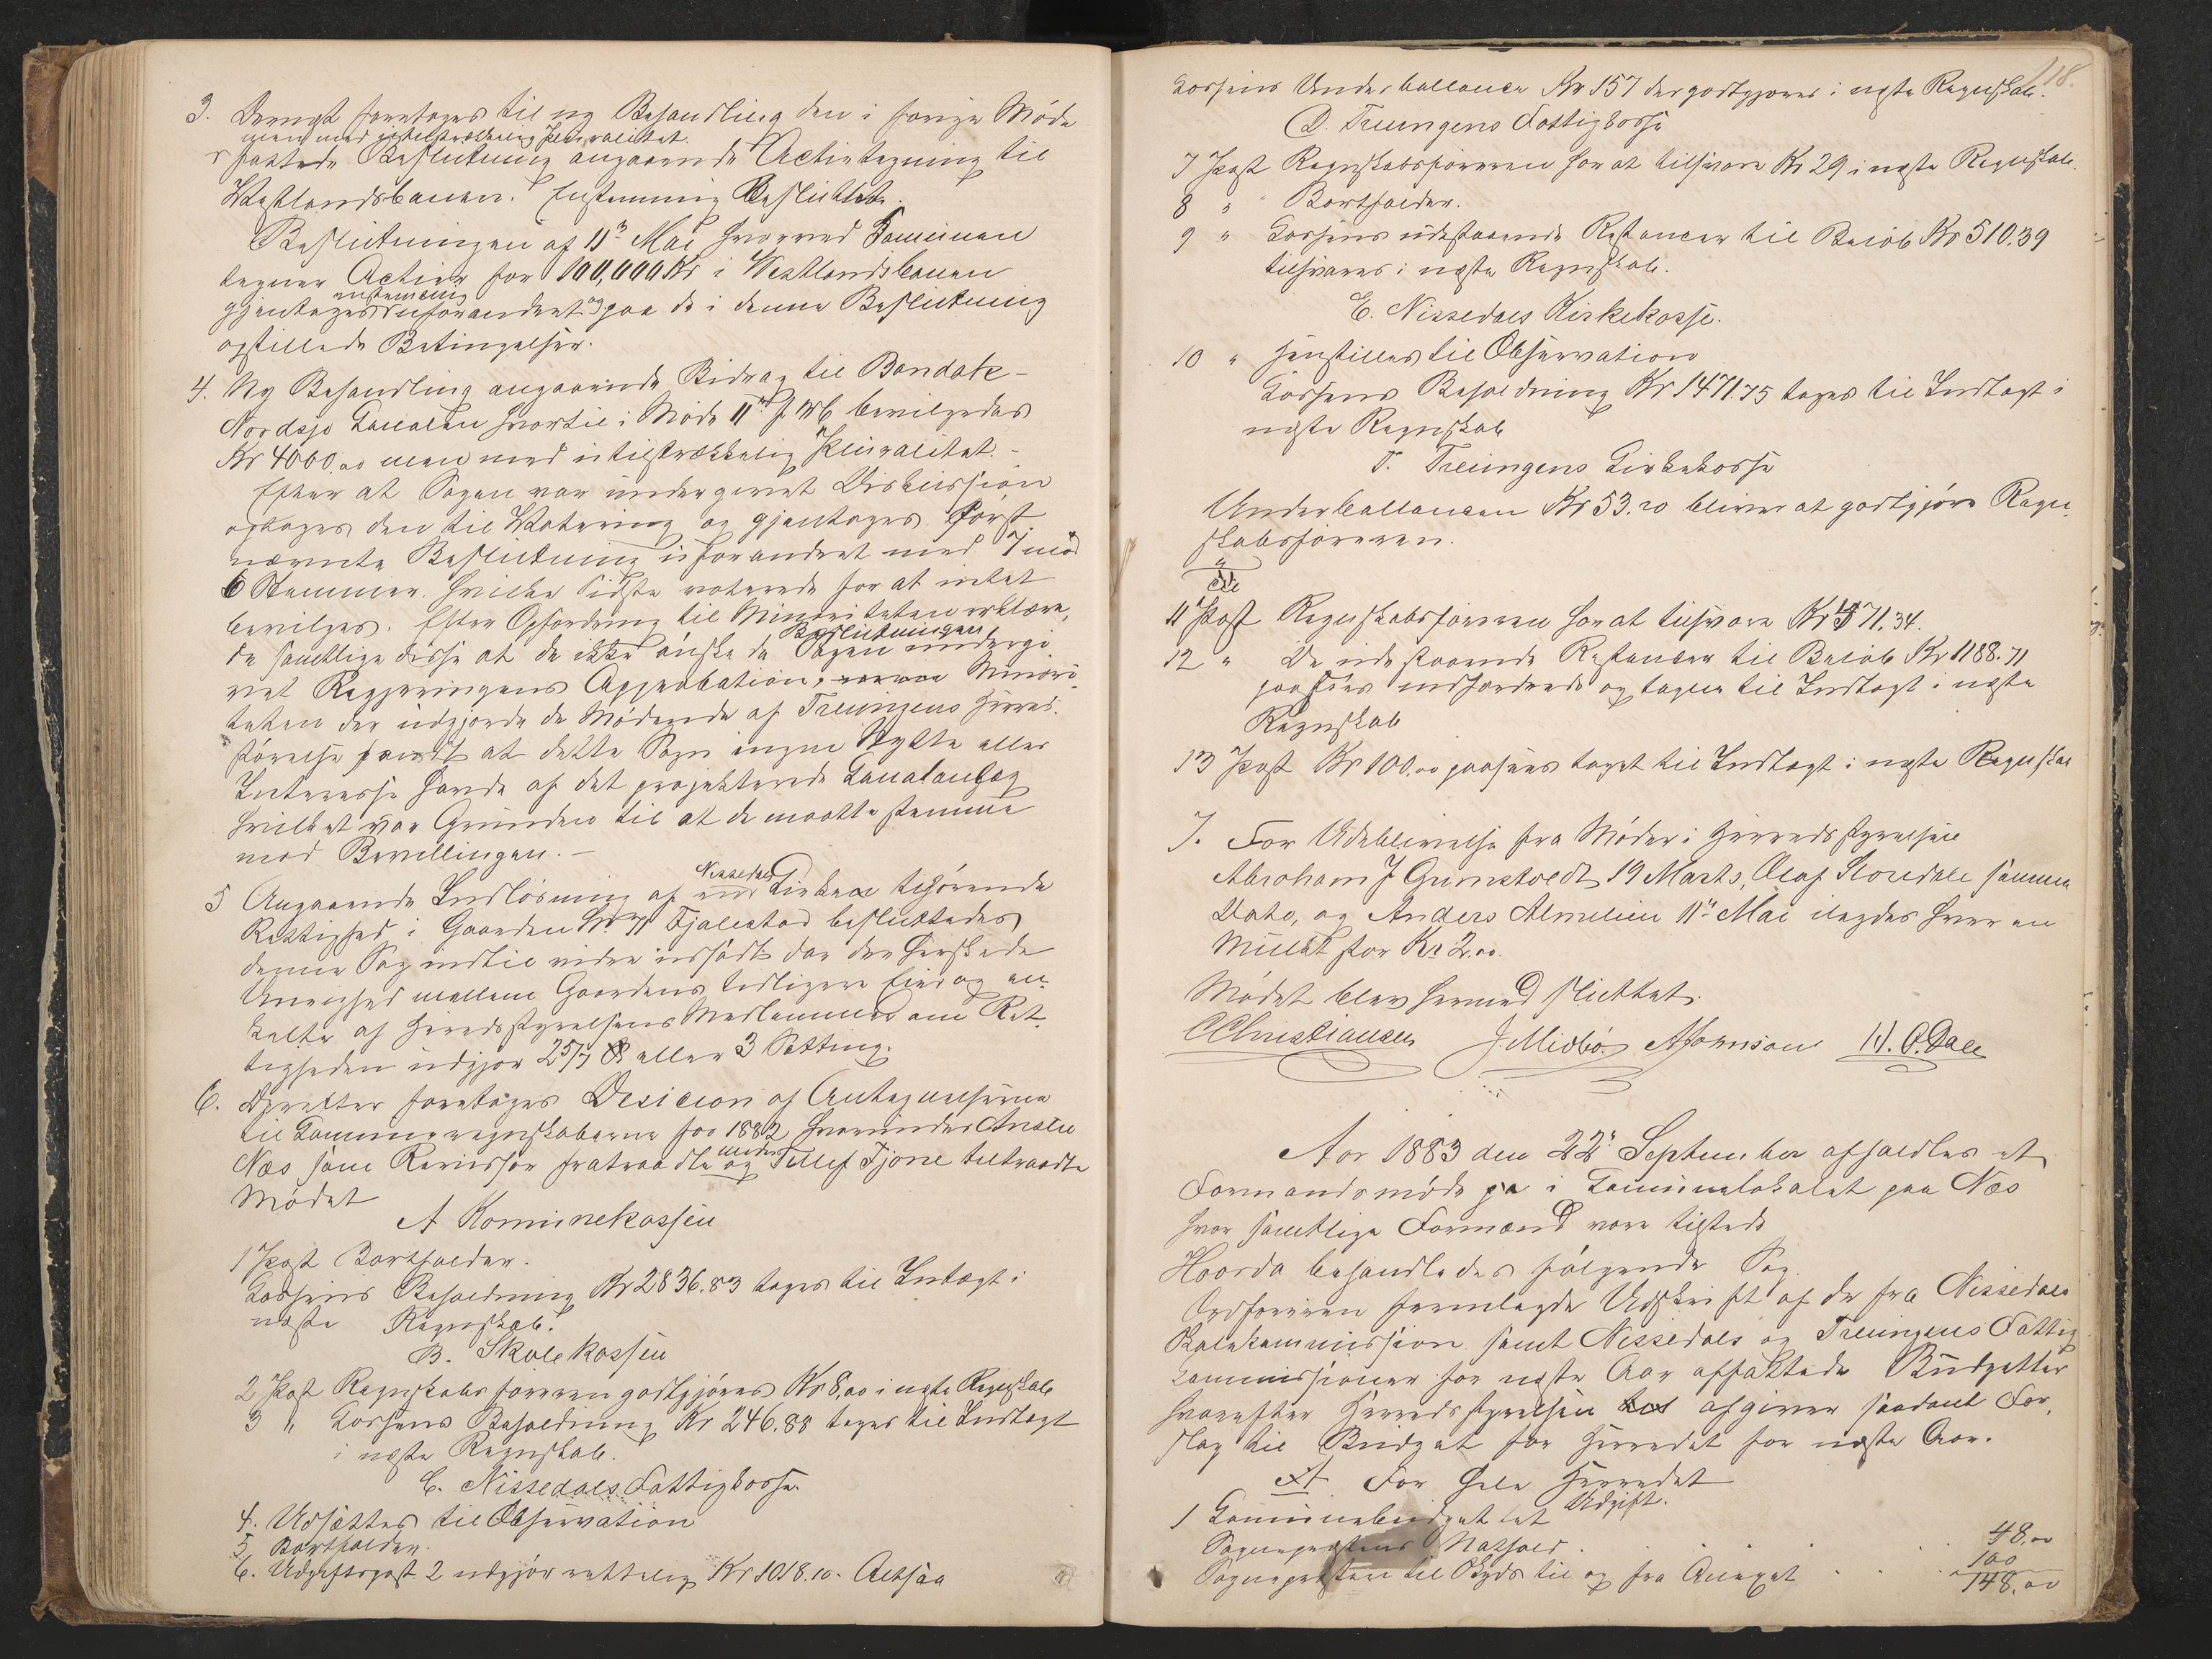 3. Dernæst foretoges til ny Behandling den i forrige Møde
men med utilstrækkelig Pluralitet
fattede Beslutning angaaende Actietegning til
Vestlandsbanen. Enstemmig Besluttet.
Beslutningen af 11te Mai hvorved Komunen
tegner Actier for 100,000 Kr i Vestlandsbanen
enstemmig
gjentages uforandret og paa de i denne Beslutning
opstillede Betingelser.
4. Ny Behandling angaaende Bidrag til Bandak-
Nordsjø Canalen hvortil i Møde 11te f. M. bevilgedes
Kr 4000.00 men med utilstrækkelig Pluralitet. -
Efter at Sagen var undergivet Diskussion
optoges den til Votering og gjentages først
nævnte Beslutning uforandret med 7 mod
6 Stemmer. hvilke sidste voterede for at intet
bevilges. Efter Opfordring til Minoriteten erklære,
Beslutningen
de samtlige disse at de ikke ønske de Sagen undergi
vet Regjeringens Approbation, Minori
teten der udgjorde de Mødende af Treungens Herreds-
styrelse fandt at dette Sogn ingen Nytte eller
Interesse havde af det projekterede Canalanlæg
hvilket var Grunden til at de maatte stemme
mod Bevillingen. -
5 Angaaende Indløsning af Nissedals Kirken tilhørende
Rettighed i Gaarden No 71 Fjalestad besluttedes
denne Sag indtil videre udsadt da der herskede
Uenighed mellem Gaardens tidligere Eier og en-
kelte af Heredsstyrelsens Medlemmer om Ret-
tigheden udgjør 2 5/7 eller 3 Setting.
6. Derefter foretoges Desicion af Antegnelserne
til Kommuneregnskaberne for 1882 hvorunder Anslu
Næs som Revissor fratraadte Mødet og Tellef Tjøne tiltraadte
Mødet
A Kommunekassen
1 Post Bortfalder.
Kassens Beholdning Kr 2836.83 tages til Indtægt i
næste Regnskab.
B. Skolekassen
2 Post Regnskabsføreren godtgjøres Kr 8,00 i næste Regnskab
3 " Kassens Beholdning Kr 246.88 tages til Indtægt
i næste Regnskab.
C. Nissedals Fattigkasse.
4. Udsættes til Observation
5. Bortfalder.
6. Udgiftspost 2 udgjør rettelig Kr 1018.10. Altsaa
118.
Kassens Underballance Kr 157 der godtgjøres i næste Regnskab.
D. Treungens Fattigkasse
7 Post Regnskabsføreren har at tilsvare Kr 29 i næste Regnskab.
8 " Bortfalder.
9 " Kassens udestaaende Restancer til Beløb Kr 510.39
tilsvares i næste Regnskab.
E. Nissedals Kirkekasse.
10 " henstilles til Observation
Kassens Beholdning Kr 1471.75 tages til Indtægt i
næste Regnskab
F. Treungens Kirkekasse
Underballancen Kr 53.20 bliver at godtgjøre Regn-
skabsføreren.
11 Post Regnskabsføreren har at tilsvare Kr 571.34.
12 " De udestaaende Restancer til Beløb Kr 1188.71
paasees indfordrede og tagen til Indtægt i næste
Regnskab
13 Post Kr 100.00 paasees taget til Indtægt i næste Regnskab
7. For Udeblivelse fra Møder i Herredsstyrelsen
Abraham J Grimstvedt 19 Marts, Olaf Haugdal samme
Dato, og Anders Almelien 11te Mai ilagdes hver en
Mulkt stor Kr 2.00.
Mødet blev hermed sluttet.
CChristiansen J. Midbø. AJohnson H. O. Dale
Aar 1883 den 22de September afholdtes et
Formandsmøde i Communelokalet paa Næs
hvor samtlige Formænd vare tilstede
Hvorda behandledes følgende Sag.
Ordføreren fremlagde Udskrift af de fra Nissedals
Skolekommission samt Nissedals og Treungens Fattig
kommissioner for næste Aar affattede Budgetter
hvorefter Herredsstyrelsen afgiver saadant For-
slag til Budget for Herredet for næste Aar.
A For hele Herredet
Udgift.
1 Communebudgettet
Sognepræstens Nathold . . . 48.00
Sognepresten til Skyds til og fra Annexet . . . 100
148.00